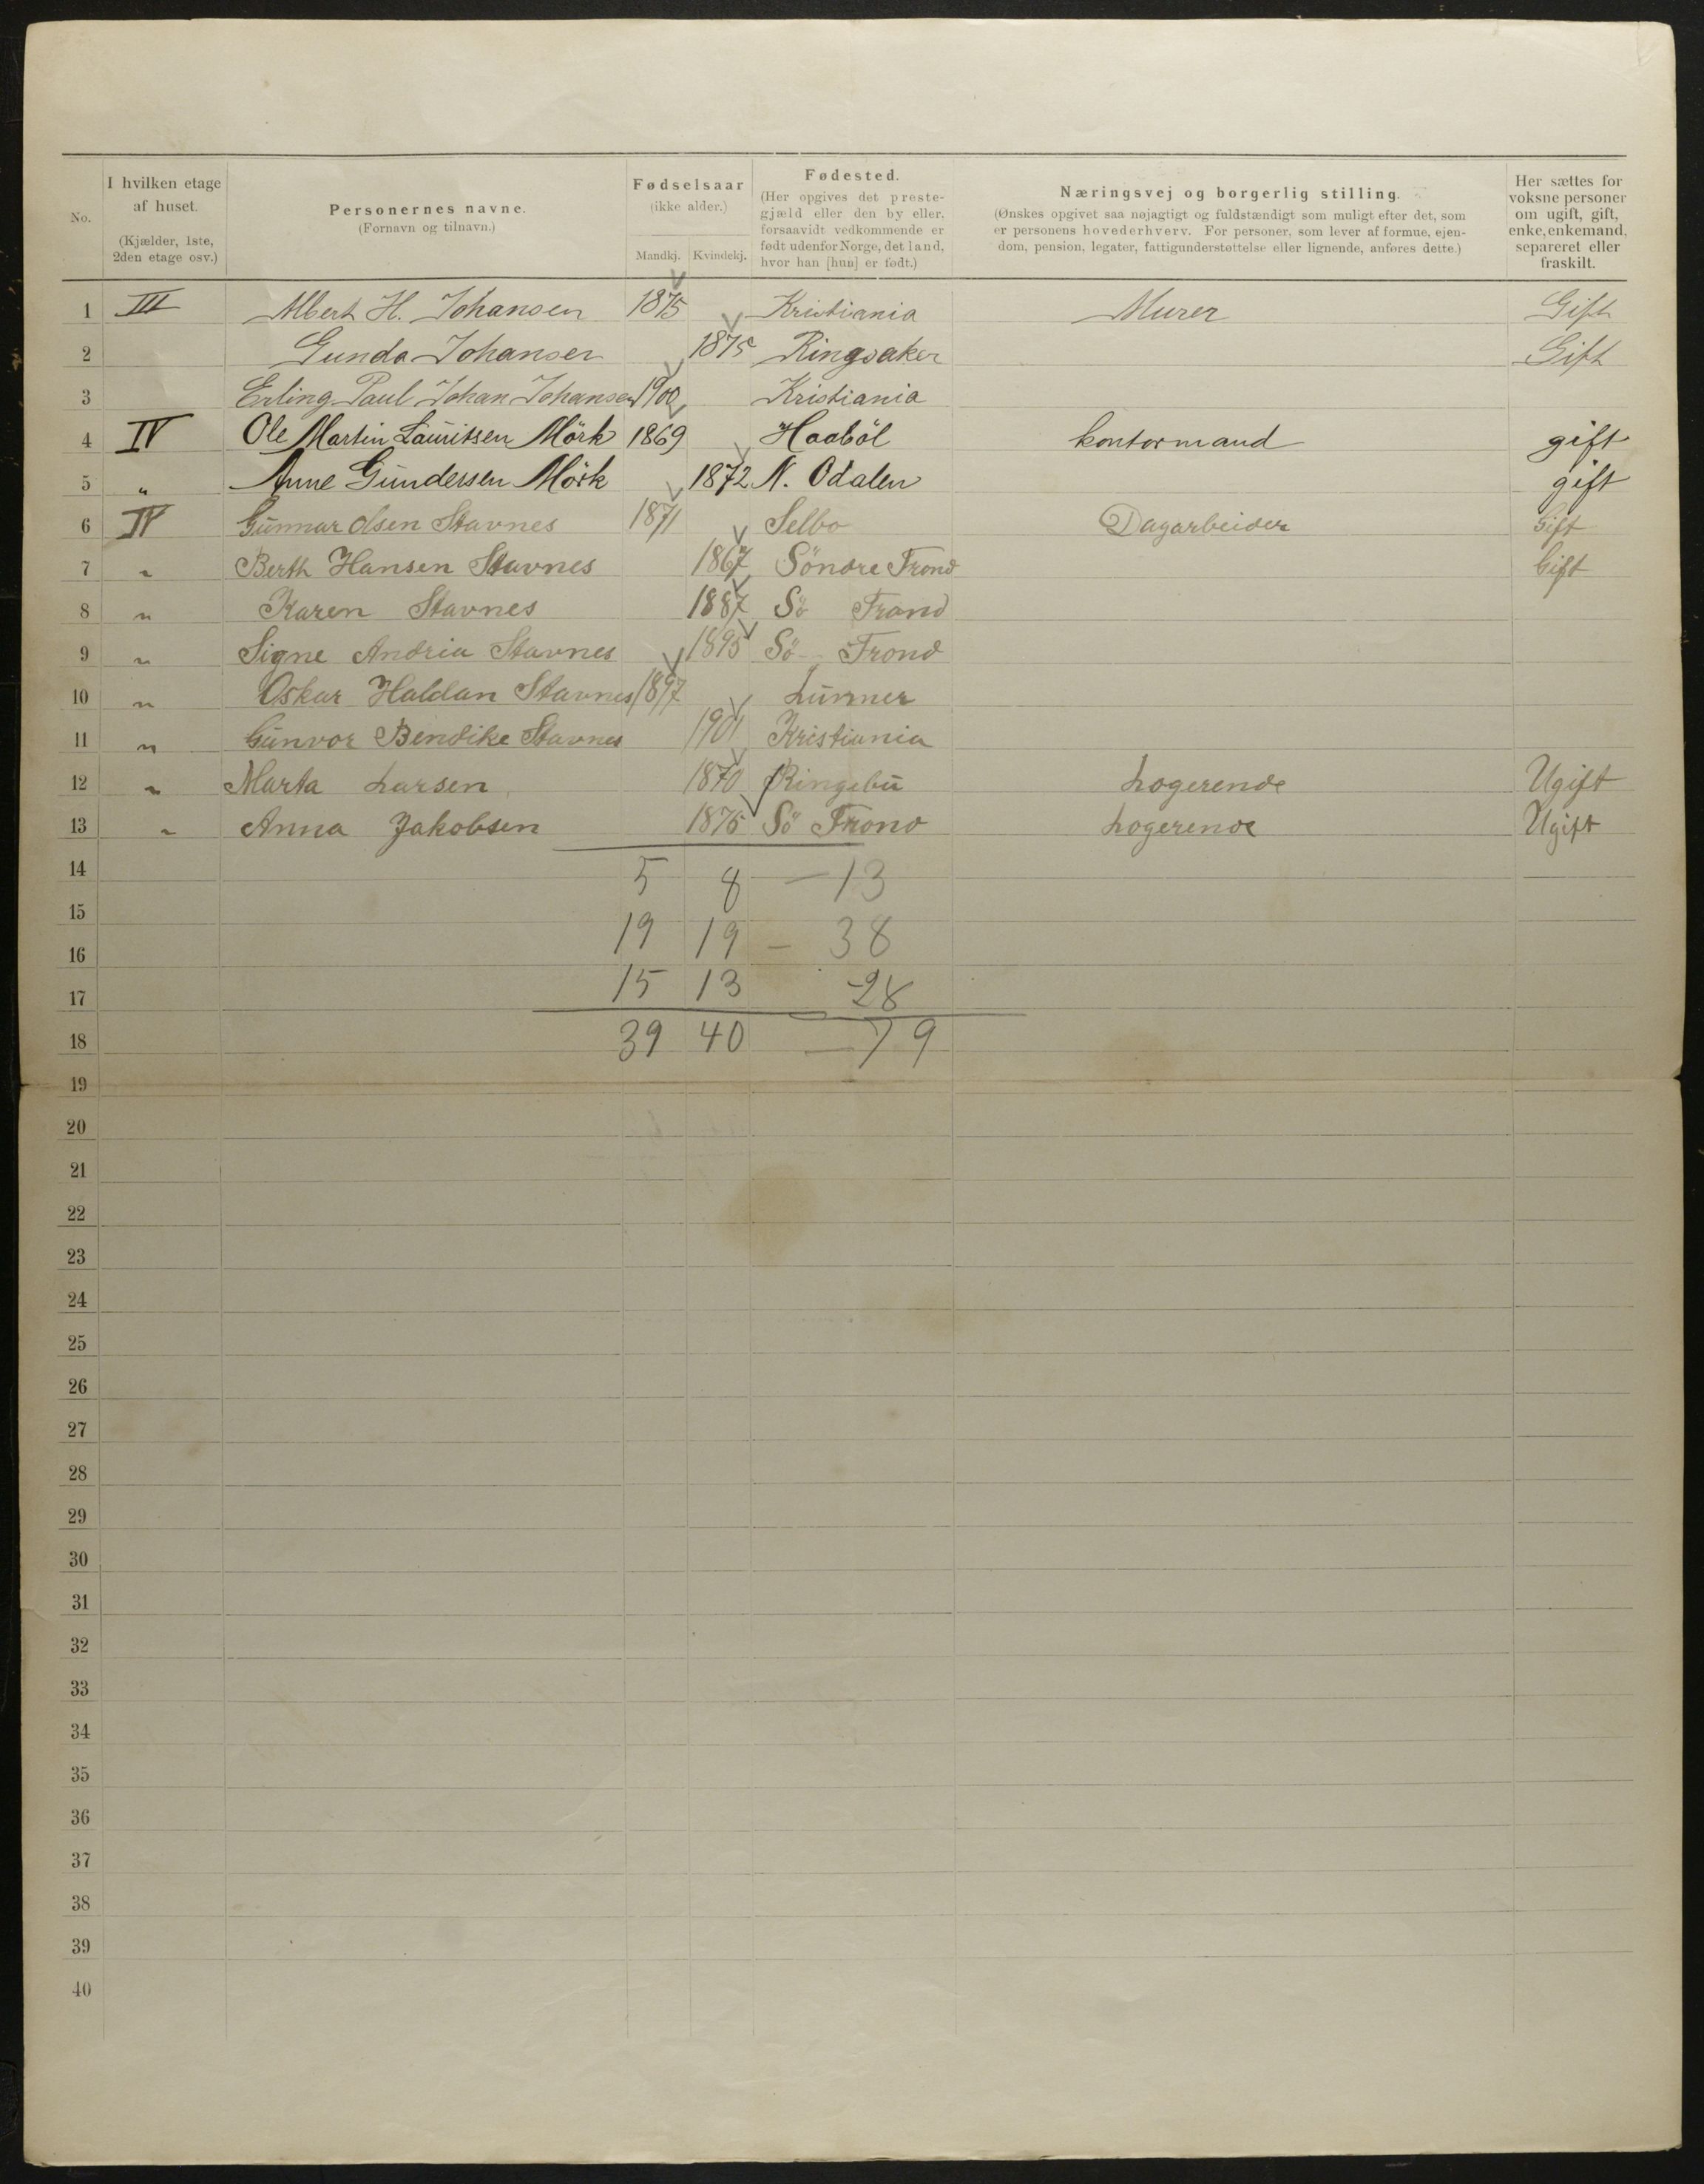 No.
I hvilken etage af huset. (Kjælder, 1ste, 2den etage osv.)
Personernes navne. (Fornavn og tilnavn.)
Fødselsaar (ikke alder.)
Mandkj. Kvindekj.
Fødested. (Her opgives det prestegjæld eller den by eller, forsaavidt vedkommende er født udenfor Norge, det land, hvor han [hun] er født.)
Næringsvej og borgerlig stilling.
(Ønskes opgivet saa nøjagtigt og fuldstændigt som muligt efter det, som er personens hovederhverv. For personer, som lever af formue, ejendom, pension, legater, fattigunderstøttelse eller lignende, anføres dette.)
Her sættes for voksne personer om ugift, gift, enke, enkemand, separeret eller fraskilt.
1 III Albert H. Johansen 1875 Kristiania Murer Gift
2 Gunda Johansen 1875 Ringsaker Gift
3 Erling Paul Johan Johansen 1900 Kristiania
4 IV Ole Martin Lauritsen Mörk 1869 Haaböl kontormand gift
5 " Anne Gundersen Mörk 1872 N. Odalen gift
6 IV Gunnar Olsen Stavnes 1871 Selbo Dagarbeider Gift
7 " Berth Hansen Stavnes 1867 Söndre Frond Gift
8 " Karen Stavnes 1887 Sö Frond
9 " Signe Andria Stavnes 1895 Sö Frond
10 " Oskar Haldan Stavnes 1897 Lunner
11 " Gunvor Bendike Stavnes 1901 Kristiania
12 " Marta Larsen 1870 Ringebu Logerende Ugift
13 " Anna Jakobsen 1875 Sö Frond Logerende Ugift
14 5 8 — 13
15
16 19 19 — 38
17 15 13 — 28
18 39 40 — 79
19
20
21
22
23
24
25
26
27
28
29
30
31
32
33
34
35
36
37
38
39
40